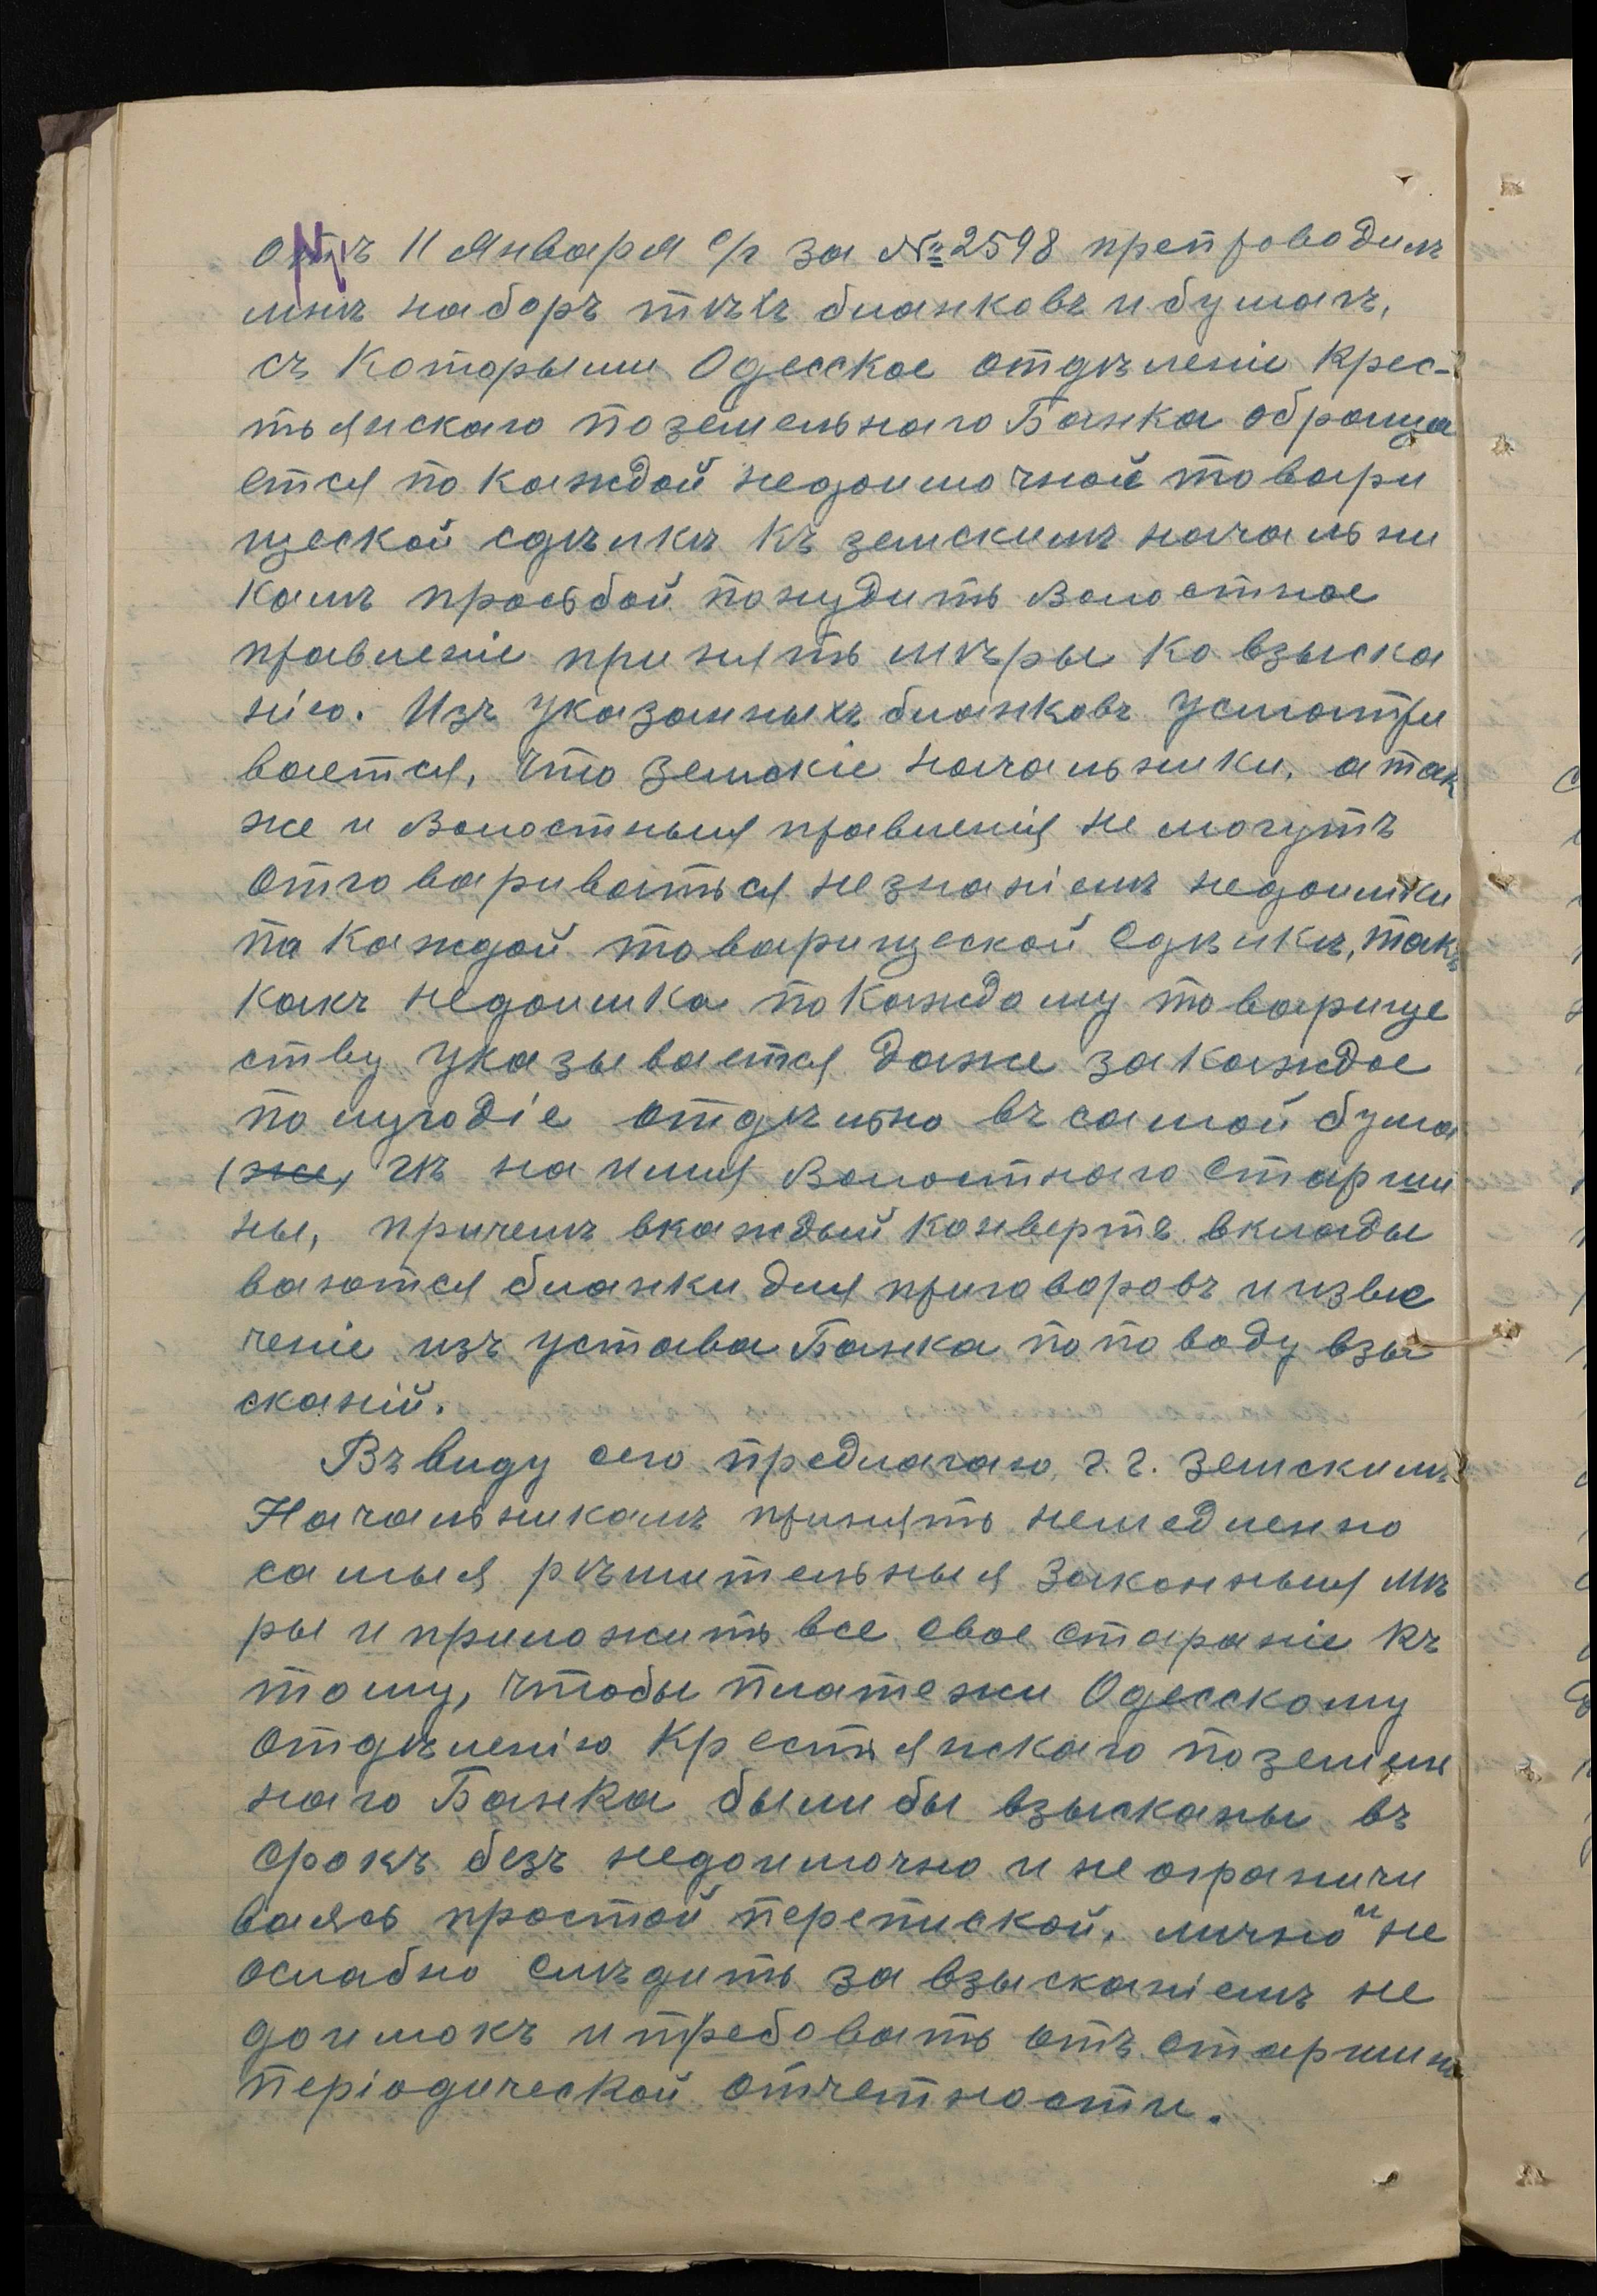 отъ 11 Января с/г за №2598 препроводилъ
мнѣ наборъ тѣхъ бланковъ и бумагъ,
съ которыми Одесское отдѣленіе Крес-
тьянскаго поземельнаго Банка обраща
ется по каждой недоимочной товари
щеской сдѣлкѣ къ земскимъ начальни
камъ просьбой понудить Волостное
правленіе принять мѣры ко взыска
нію. Изъ указанныхъ бланковъ усматри
вается, что земскіе начальники, а так
же и Волостныя правленія не могутъ
отговариваться незнаніемъ недоимки
по каждой товарищеской сдѣлкѣ, такъ
какъ недоимка по каждому товарище
ству указывается даже за каждое
полугодіе отдѣльно въ самой бума
(же) гѣ на имя Волостного Старши
ны, причемъ вкаждый конвертъ вклады
ваются бланки для приговоровъ и извле
ченіе изъ устава Банка по поводу взы
сканій.
Въ виду сего предлагаю г.г. Земскимъ
Начальникамъ принять немедленно
самыя рѣшительныя законныя мѣ
ры и приложить все свое стараніе къ
тому, чтобы платежи Одесскому
отдѣленію Крестьянскаго поземель
наго Банка были бы взысканы въ
срокъ безъ недоимочно и не ограничи
ваясь простой перепиской, лично и не
ослабно слѣдить за взысканіемъ не
доимокъ и требовать отъ старшинъ
періодической отчетности.